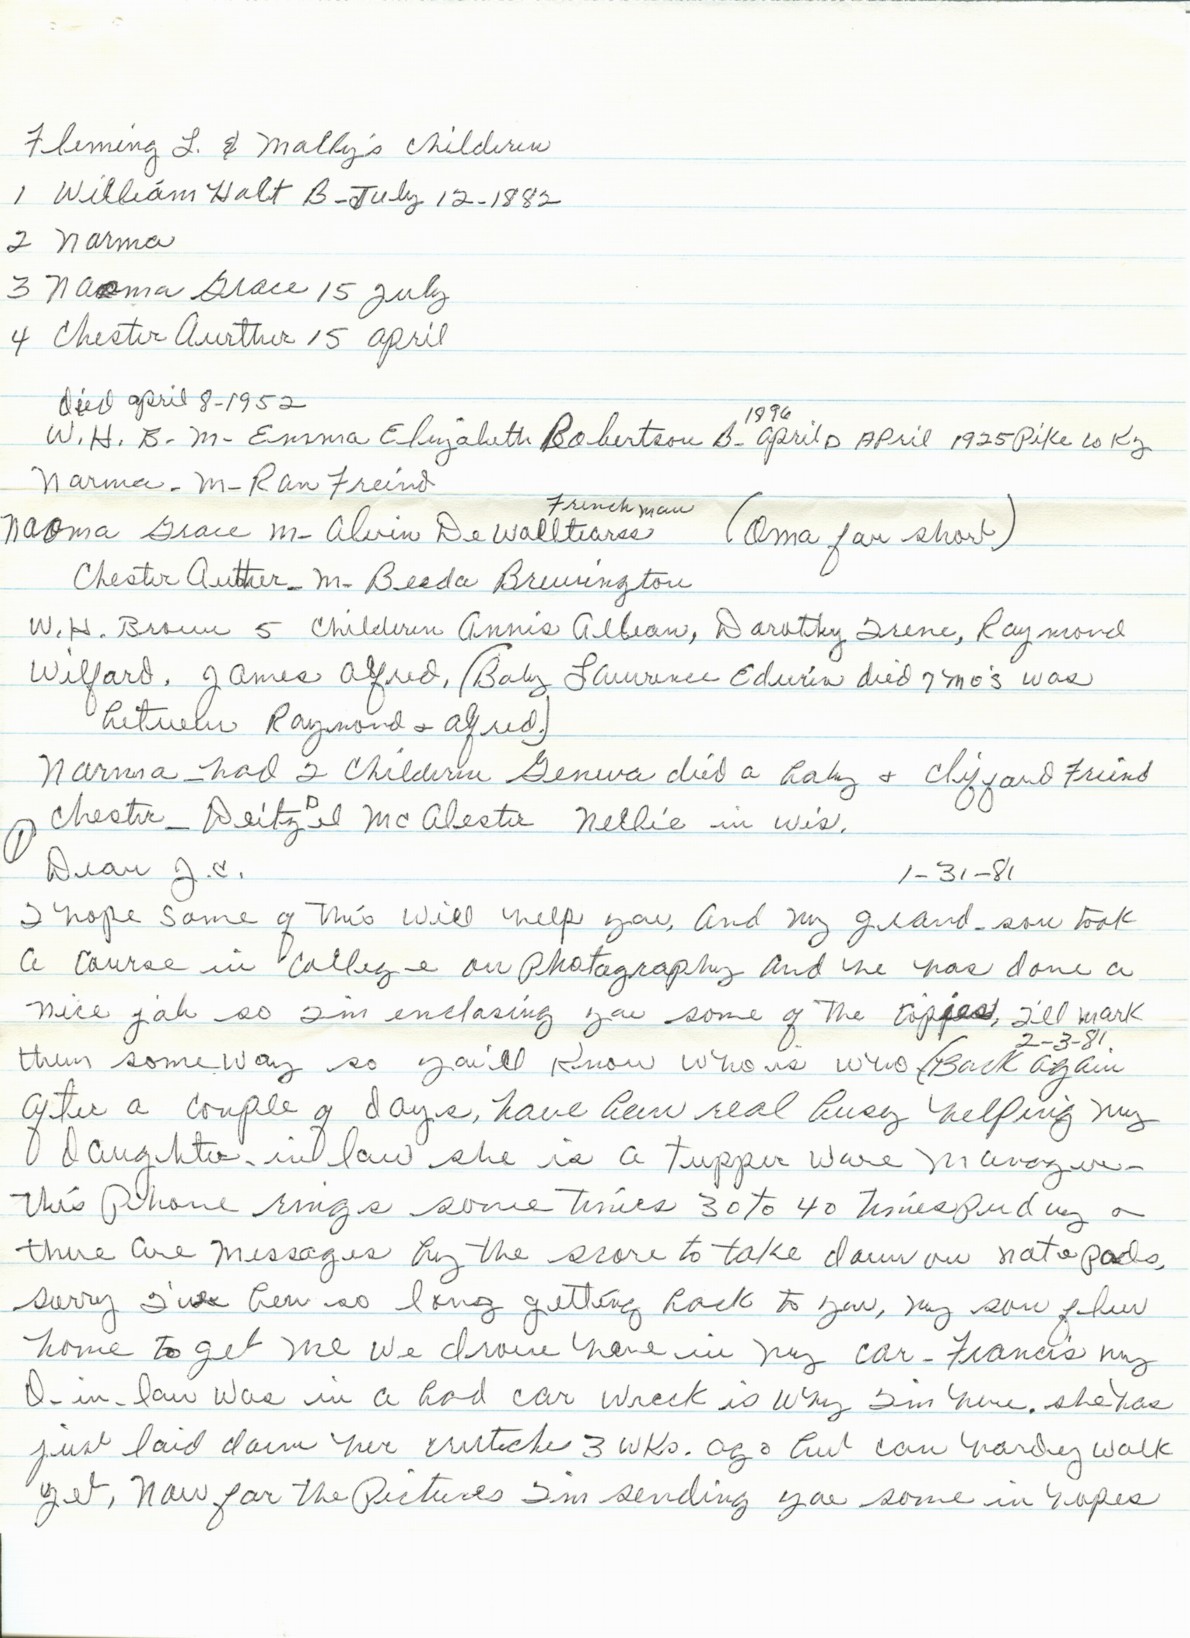 Fleming L. & Molly's children
1 William Holt B-July 12-1882
2 Norma
3 Naoma Grace 15 July
4 Chester Aurther 15 april
died april 8-1952
1896
W.H. B- M- Emma Elizabeth Robertson B- april D April 1925 Pike Co Ky
Norma - M- Ran Freind
Frenchman
Naoma Grace M- Alvin De (Oma for short)
Chester Auther - M- Breda Brewington
W.H. Brown 5 children Annis Albian, Dorothy Irene, Raymond
Wilford. James Alfred, (Baby Lawrence Edwin died 7 mo's was
between Raymond & Alfred.)
Norma had 2 children Geneva died a baby & Clifford Freind
Chester - McAlester Nellie in Wis.
1
Dear J.C. 1-31-81
I hope some of this will help you, And my grand-son took
a course in college on photography and he has done a
nice job so I'm enclosing you some of the copies, I'll mark
them someway so you'll know who is who (Back again
2-3-81.
after a couple of days, have been real busy helping my
daughter-in law she is a Tupper ware Manager -
this phone rings some times 30 to 40 times per day &
there are messages by the score to take down on note pads,
sorry I've ben so long getting back to you, my son flew
home to get me we drove here in my car - Francis my
D-in-law was in a bad car wreck is why I'm here. she has
just laid down her 3 wks. ago but can hardly walk
yet, Now for the Pictures I'm sending you some in hopes